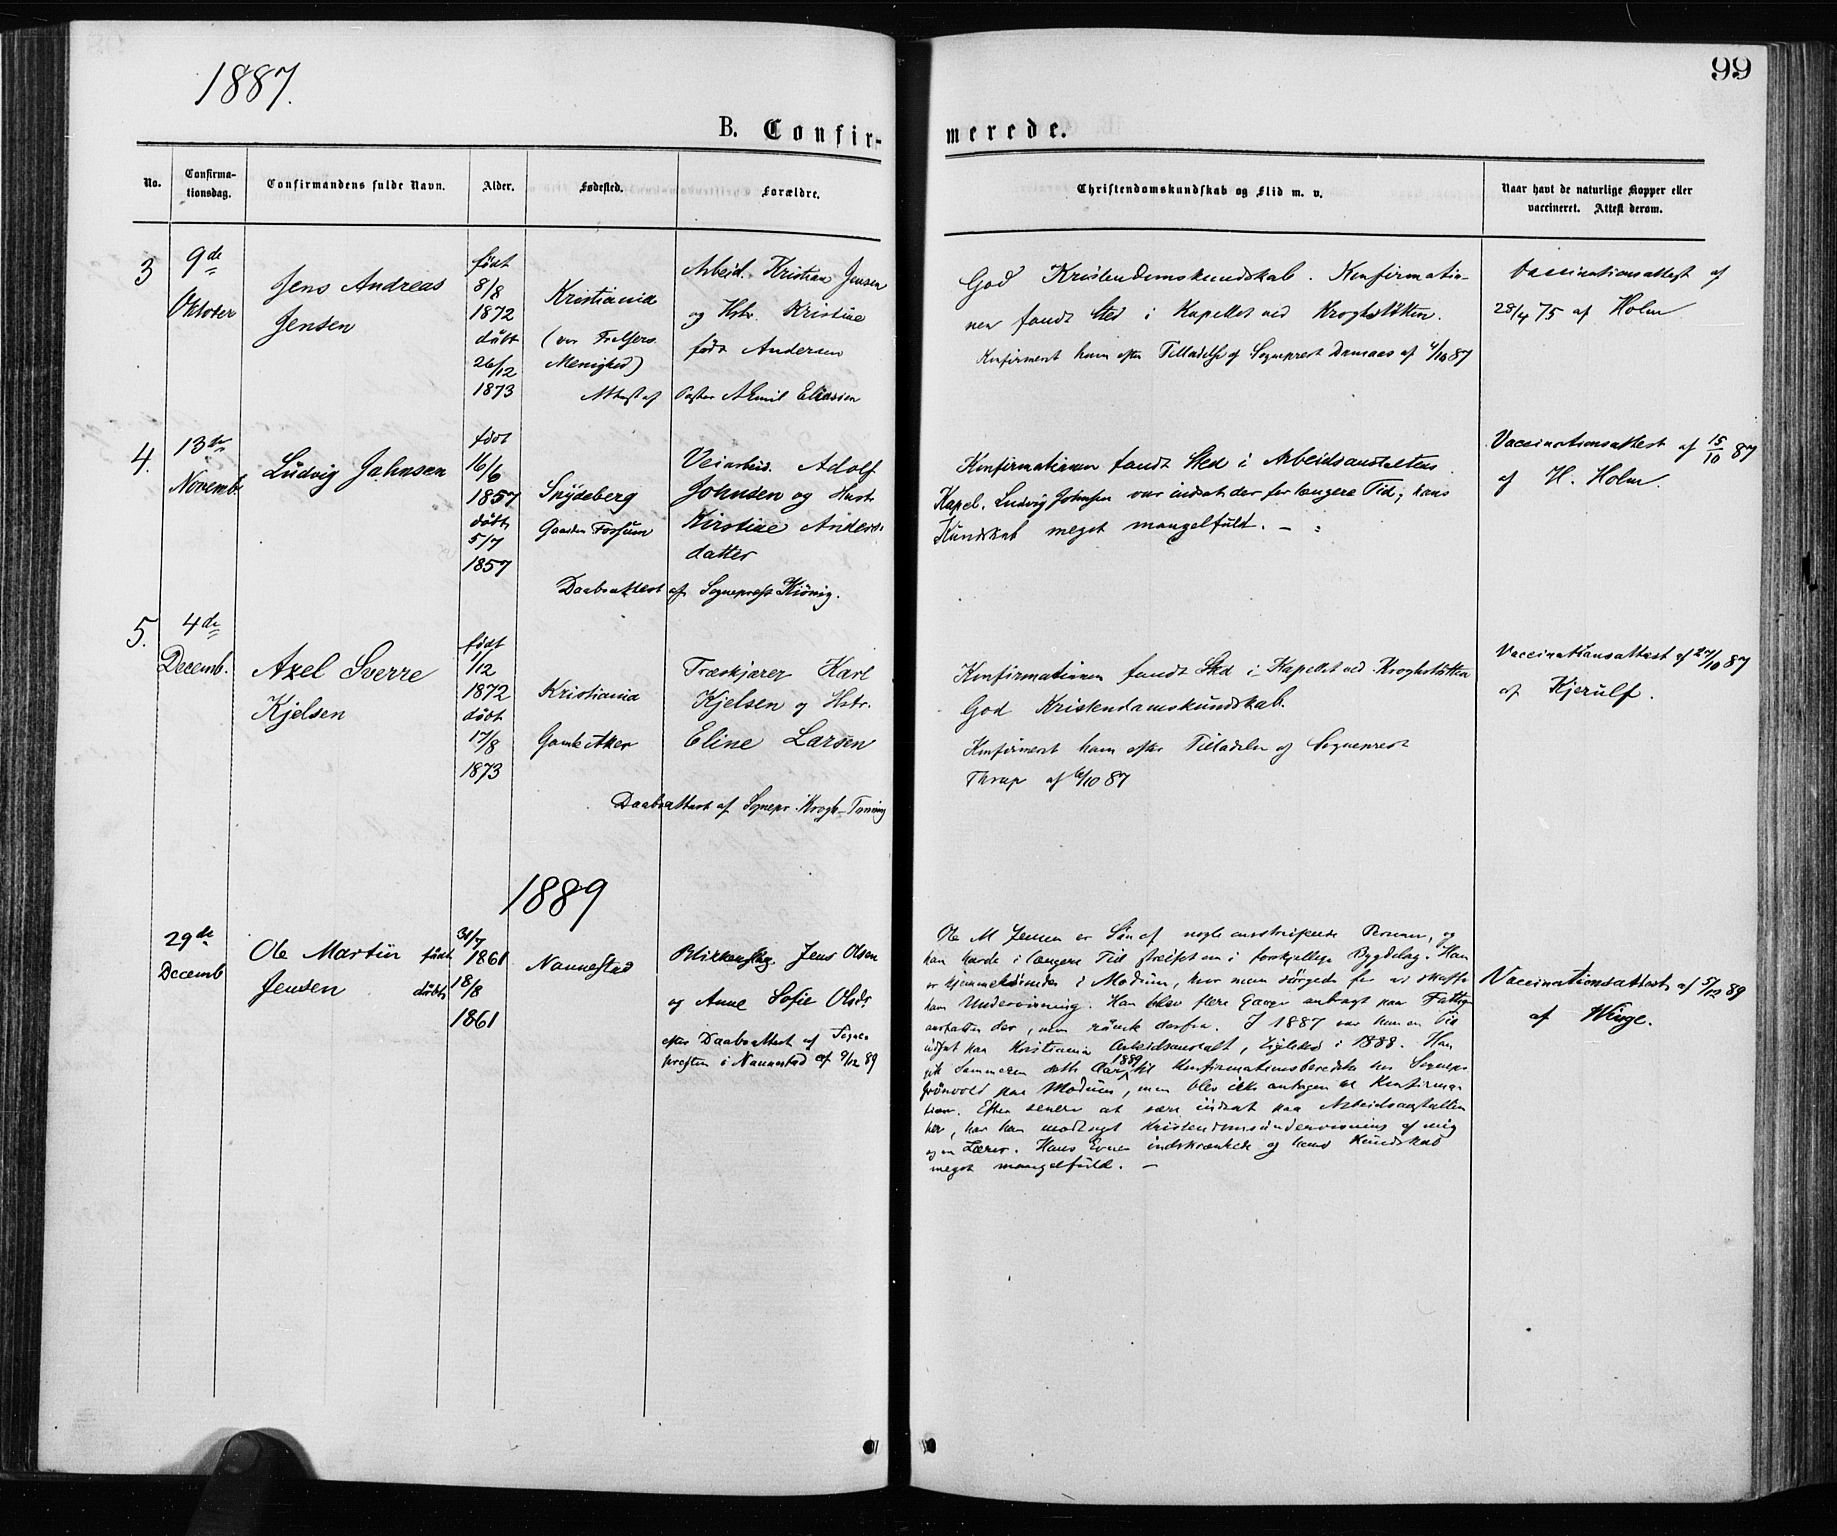 1887.
99
B. Confir-
merede.
No.
Confirma-
tionsdag.
Confirmandens fulde Navn.
Alder.
Fødested.
Forældre.
Christendomskundskab og Flid m. v.
Naar havt de naturlige Kopper eller
vaccineret. Attest derom.
3
9de
Oktober
Jens Andreas
Jensen
født
8/8
1872
døbt
26/12
1873
Kristiania
(vor Frelsers
Menighed)
Arbeid. Kristian Jensen
og Hstr. Kristine
født Andersen
Attest af Pastor Emil Eliassen
God Kristendomskundskab. Konfirmatio-
nen fandt Sted i Kapellet ved Krogstøtten.
Konfirmeret ham efter Tilladelse af Sogneprest af 4/10 87
Vaccinationsattest af
28/4 75 af Holm
4.
13de
Novemb.
Ludvig Johnsen
født
16/6
1857
døbt
5/7
1857
Spydeberg
Gaarden Forsum
Veiarbeid. Adolf
Johnsen og Hustr
Kirstine Anders-
datter
Daabsattest af Sogneprest Kiönig.
Konfirmationen fandt Sted i Arbeidsanstaltens
Kapel. Ludvig Johnsen var indsat der for længere Tid; hans
Kundskab meget mangelfuld. –
Vaccinationsattest af 15/10 87
af H. Holm
5.
4de
Decemb.
Axel Sverre
Kjelsen
født
1/12
1872
døbt
17/8
1873
Kristiania
Gamle Aker
Træskjærer Karl
Kjelsen og Hstr.
Eline Larsen
Daabsattest af Sognepr. Krogh-Tonning
Konfirmationen fandt Sted i Kapellet ved Kroghstøtten
God Kristendomskundskab.
Konfirmeret ham efter Tilladelse af Sogneprest
Thrap af 6/10 87
Vaccinationsattest af 27/10 87
af Kjerulf.
1889
29de
Decemb
Ole Martin født
Jensen døbt
31/7
1861
18/8
1861
Nannestad
Blikkenslag. Jens Olsen
og Anne Sofie Olsdr
efter Daabsattest af Sogne-
presten i Nannestad af 9/12 89
Ole M Jensen er Søn af nogle omstreifende Personer, og
han havde i længere Tid streifet om i forskjellige Bygdelag. Han
er hjemmehørende i Modum, hvor man sørgede for at skaffe
ham Undervisning. Han blev flere Gange anbragt paa Fattig-
anstalten der, men rømte derfra. I 1887 var han en Tid
indsat paa Kristiania Arbeidsanstalt, ligeledes i 1888. Han
gik Sommeren dette Aar 1889 til Konfirmationsberedelse hos Sognepr
Grønvold paa Modum, men blev ikke antagen til Konfirma-
tion. Efter senere at være indsat paa Arbeidsanstalten
her, har han modtaget Kristendomsundervisning af mig
og en Lærer. Hans Evner indskrænkede og hans Kundskab
meget mangelfuld. –
Vaccinationsattest af 5/12 89
af Winge.